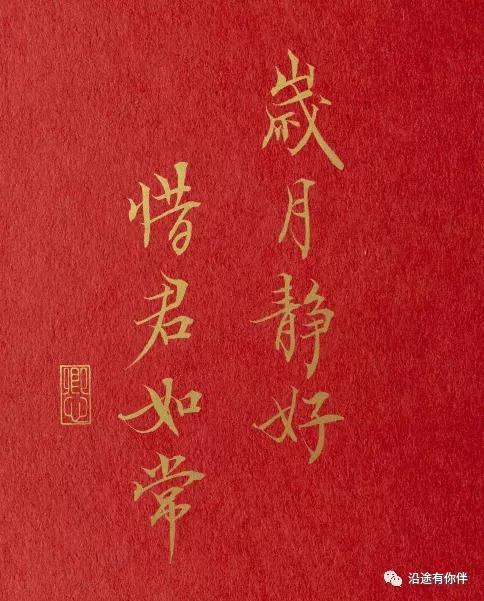 歲月静好
惜君如常
卿心
沿途有你伴